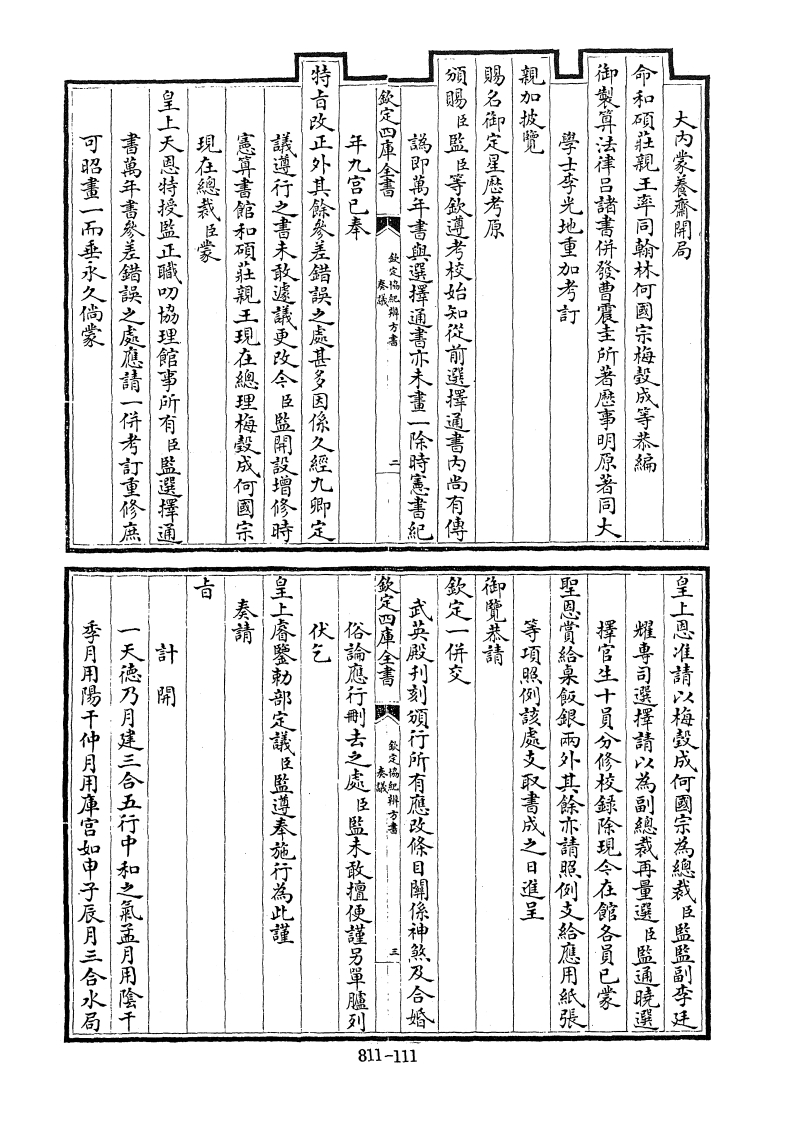 大内蒙養齋開局
命和碩莊親王率同翰林何國宗梅㲄成等恭編
御製算法律呂諸書併發曹震圭所著歴事明原著同大
學士李光地重加考訂
親加披覽
賜名御定星歴考原
頒賜臣監臣等欽遵考校始知從前選擇通書内尚有傳
譌即萬年書與選擇通書亦未畫一除時憲書紀
欽定四庫全書
欽定協紀辨方書
奏議
二
年九宫已奉
特旨改正外其餘參差錯誤之處甚多因係久經九卿定
議遵行之書未敢遽議更改今臣監開設增修時
憲算書館和碩莊親王現在總理梅㲄成何國宗
現在總裁臣蒙
皇上天恩特授監正職叨協理館事所有臣監選擇通
書萬年書參差錯誤之處應請一併考訂重修庶
可昭畫一而垂永久倘蒙
皇上恩准請以梅㲄成何國宗為總裁臣監監副李廷
耀專司選擇請以為副總裁再量選臣監通曉選
擇官生十員分修校録除現今在館各員已蒙
聖恩賞給桌飯銀兩外其餘亦請照例支給應用紙張
等項照例該處支取書成之日進呈
御覽恭請
欽定一併交
武英殿刋刻頒行所有應改條目關係神煞及合婚
欽定四庫全書
欽定協紀辨方書
奏議
三
俗論應行刪去之處臣監未敢擅便謹另單臚列
伏乞
皇上睿鑒勅部定議臣監遵奉施行為此謹
奏請
旨
計開
一天徳乃月建三合五行中和之氣孟月用陰干
季月用陽干仲月用庫宫如申子辰月三合水局
811-111